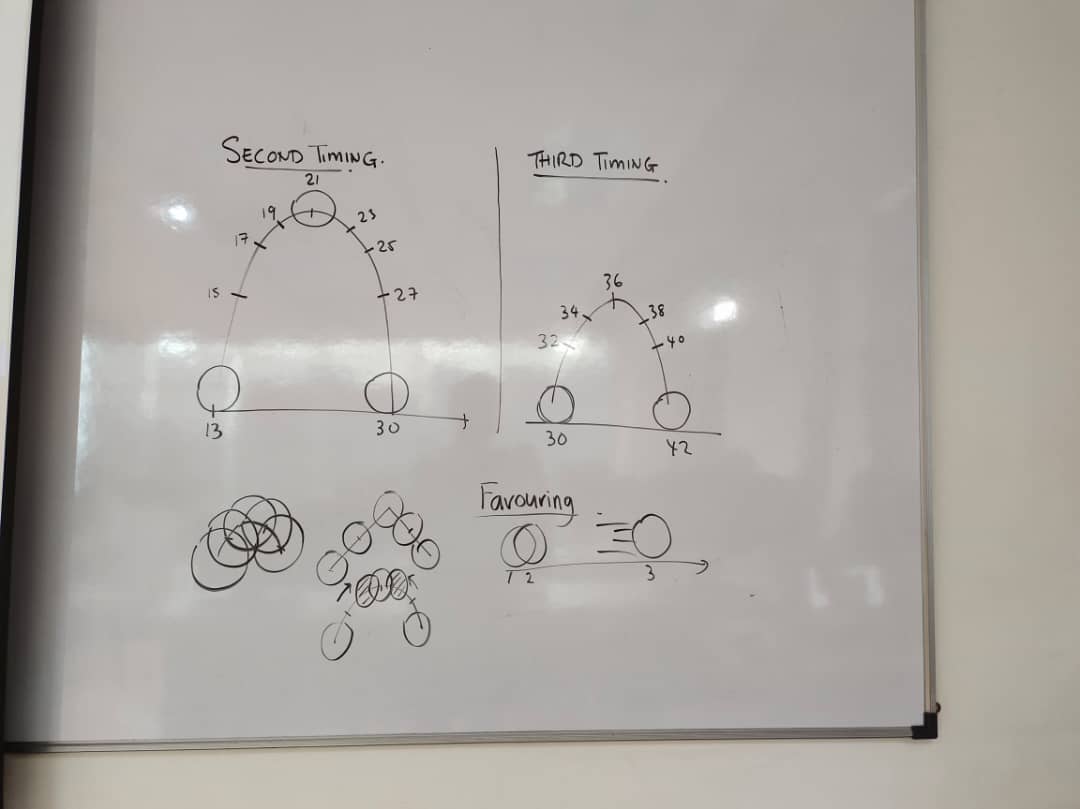 SECOND TIMING.
21
19
23
17
25
15
27
13
30
THIRD TIMING.
36
34
38
32
40
30
42
Favouring
1 2
3